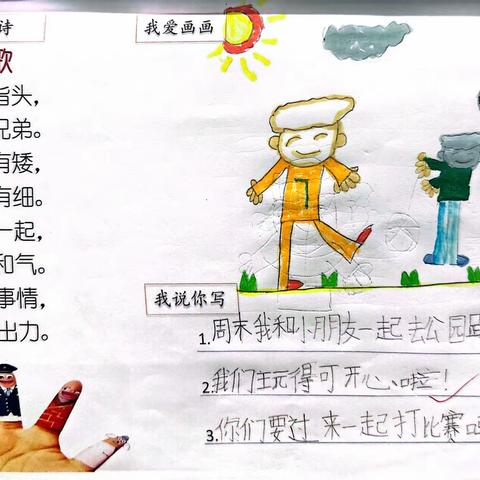 诗
歌
指头,
兄弟。
有矮,
有细。
一起,
和气。
事情,
出力。
我爱画画
7
我说你写
1.周末我和小朋友一起去公园
2.我们玩得可开心啦!
3.你们要过来一起打比赛